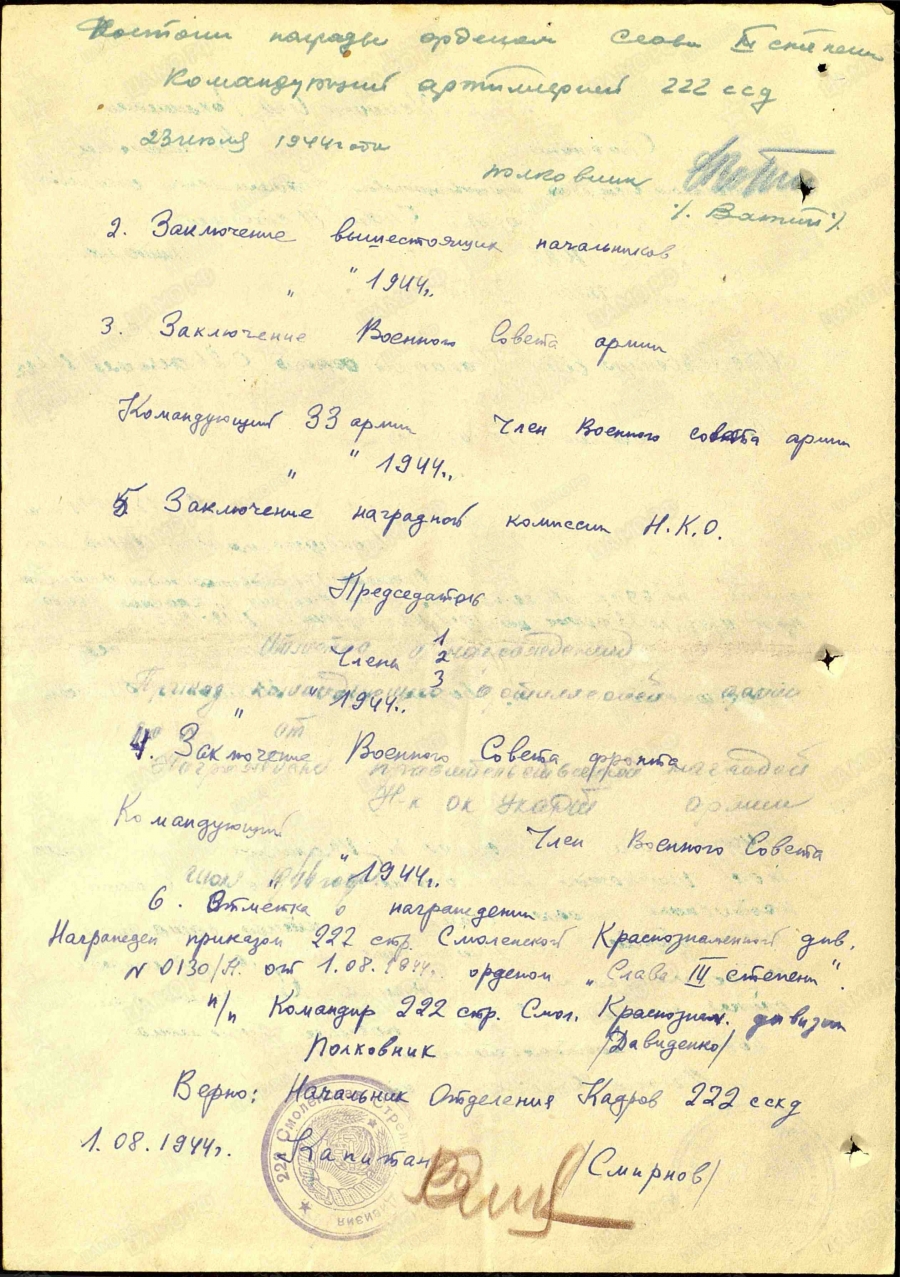 Достоин награды орденом Слава III степени
Командующий артиллерией 222 ссд
23 июля 1944 года
полковник
/. Ватий /.
2. Заключение вышестоящих начальников
" " 1944г.
3. Заключение Военного Совета армии
Командующий 33 армии Член Военного совета армии
" " 1944г.
5 Заключение наградной комиссии Н.К.О.
Председатель
1
Члены 2
3
" " 1944г.
4. Заключение Военного Совета фронта
Командующий Член Военного Совета
" " 1944г.
6. Отметка о награждении
Награжден приказом 222 стр. Смоленской Краснознаменной див.
N 0130/н. от 1.08.1944г. орденом „Слава III степени".
п/п Командир 222 стр. Смол. Краснознам. дивизии
Полковник /Давиденко/
Верно: Начальник Отделения Кадров 222 сскд
1.08.1944г. Капитан /Смирнов/
222 Смоленская стрел
дивизия